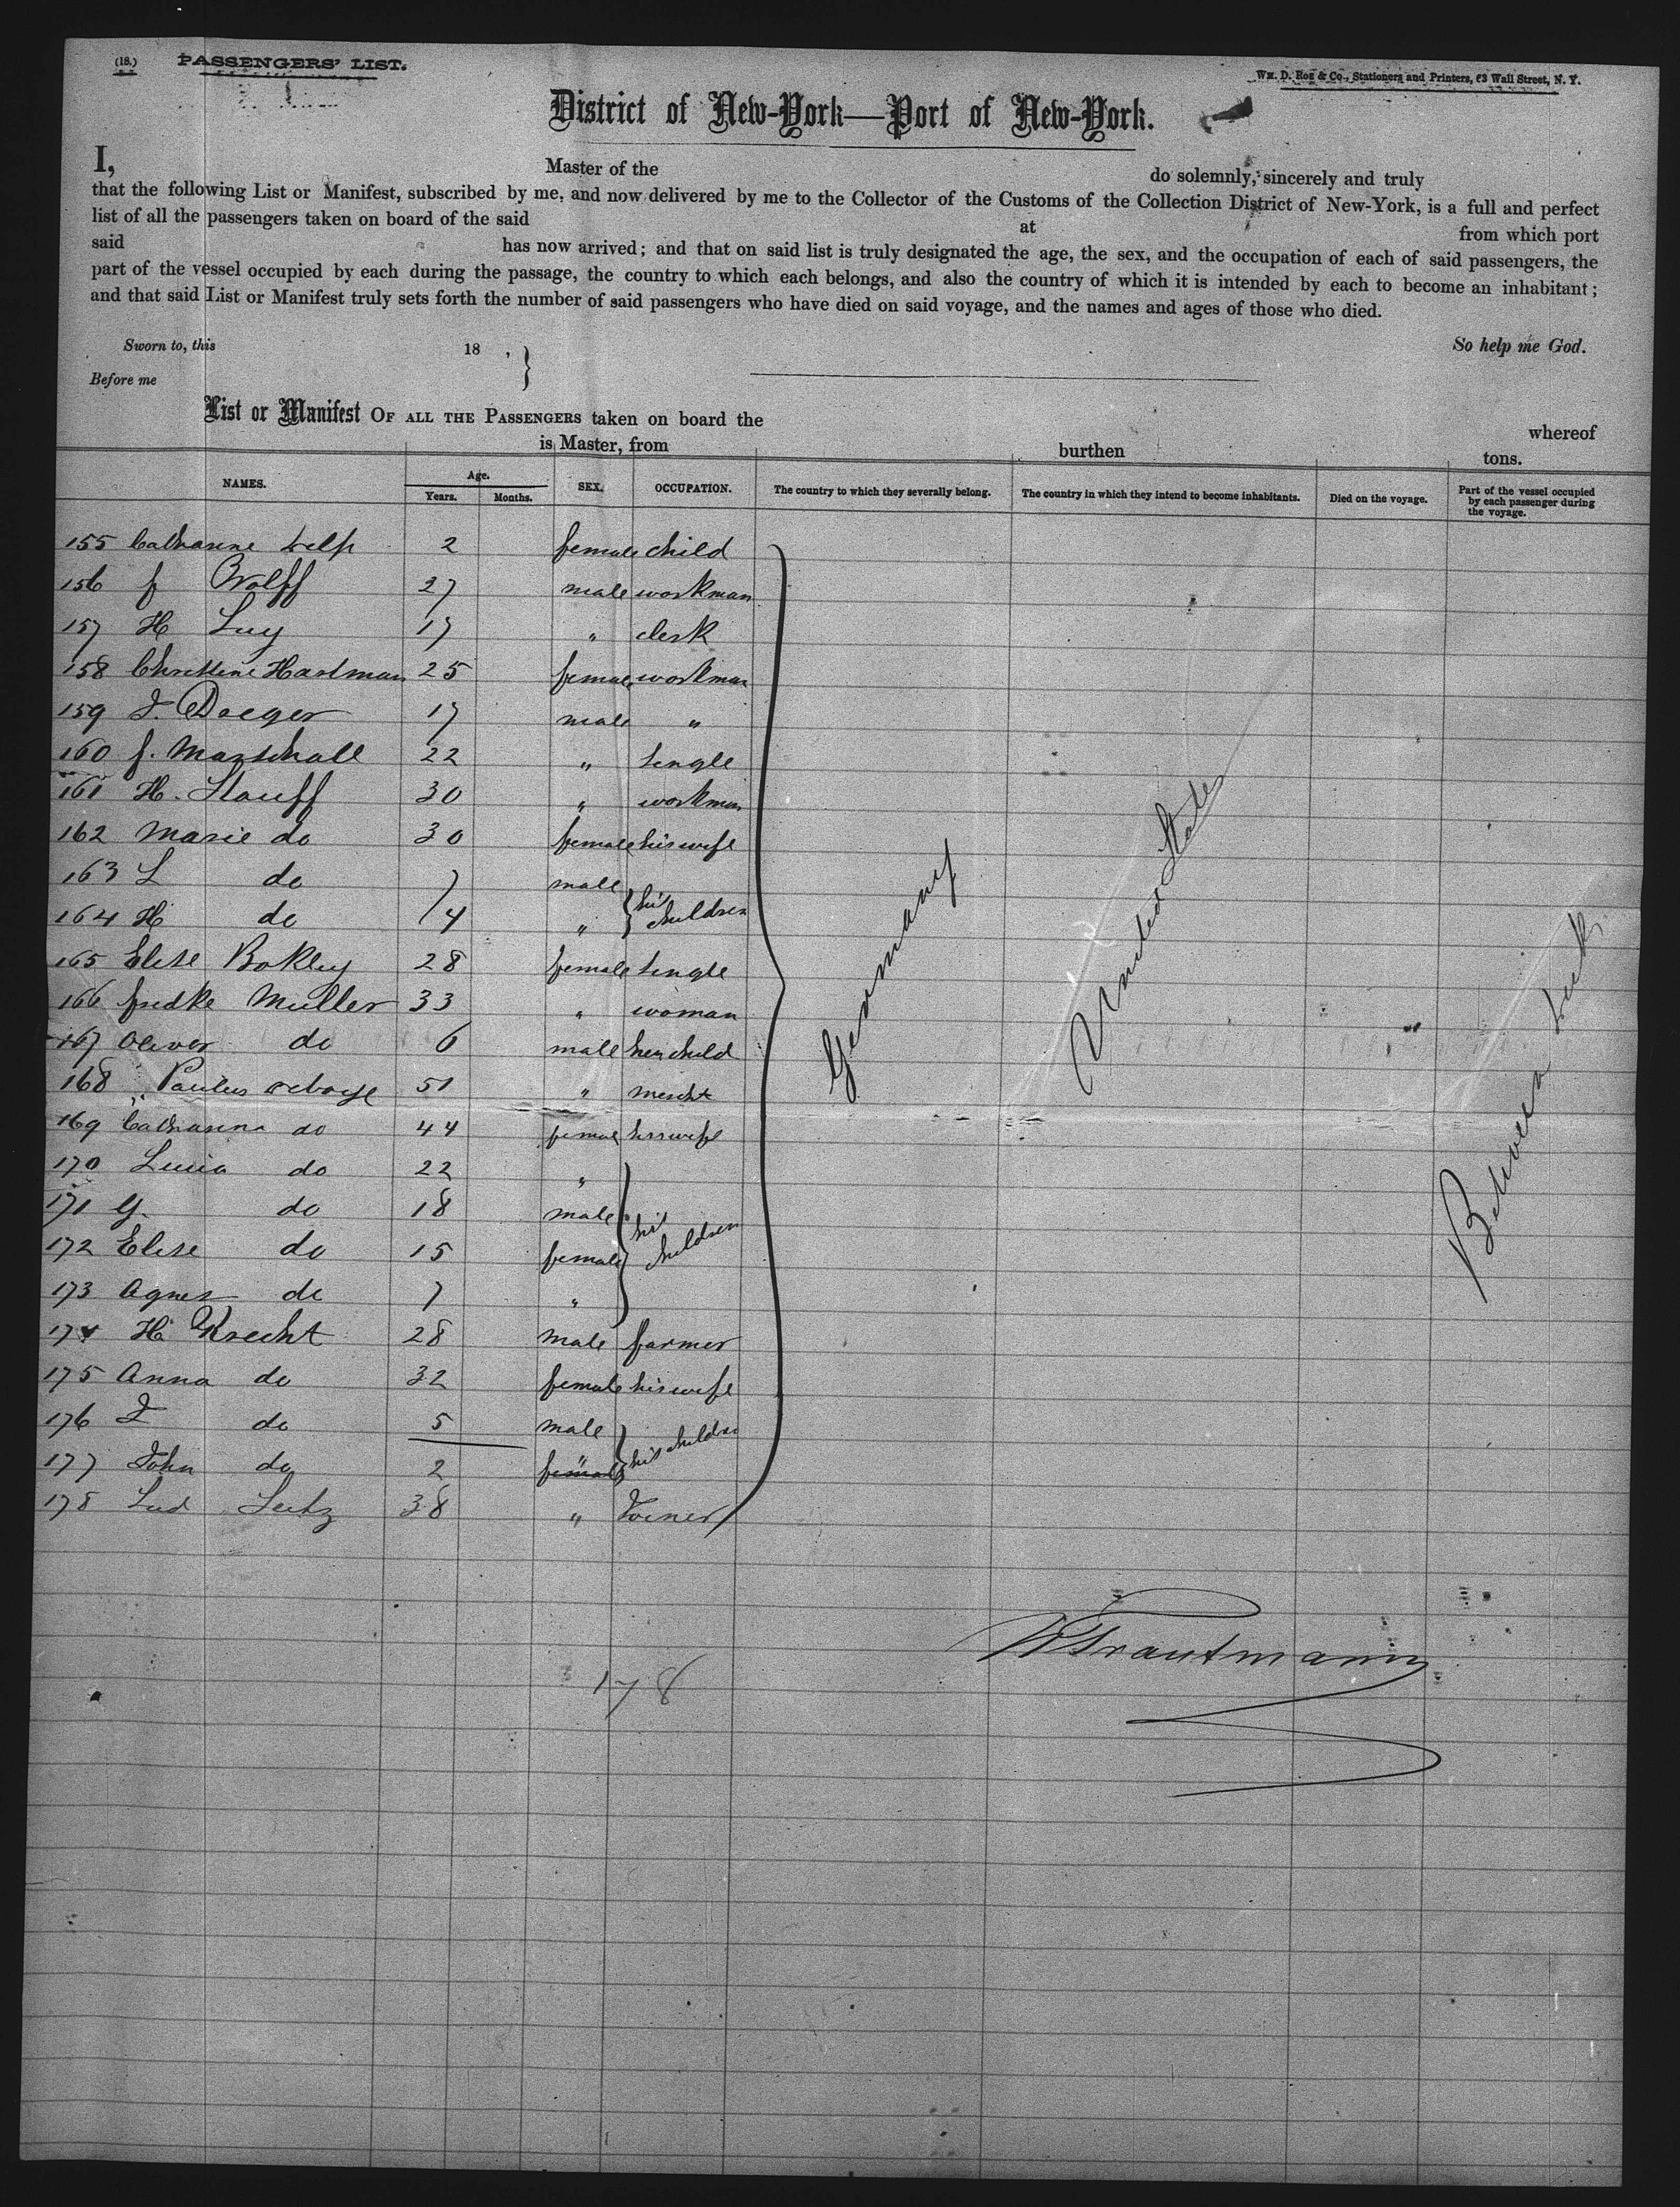 (18.) PASSENGERS' LIST.
Wm. D. Roe & Co., Stationers and Printers, 63 Wall Street, N. Y.
District of New-York—Port of New-York.
I, Master of the do solemnly, sincerely and truly
that the following List or Manifest, subscribed by me, and now delivered by me to the Collector of the Customs of the Collection District of New-York, is a full and perfect
list of all the passengers taken on board of the said at from which port
said has now arrived; and that on said list is truly designated the age, the sex, and the occupation of each of said passengers, the
part of the vessel occupied by each during the passage, the country to which each belongs, and also the country of which it is intended by each to become an inhabitant;
and that said List or Manifest truly sets forth the number of said passengers who have died on said voyage, and the names and ages of those who died.
Sworn to, this 18 , So help me God.
Before me
List or Manifest OF ALL THE PASSENGERS taken on board the whereof
is Master, from burthen tons.
NAMES. Age. Years. Months. SEX. OCCUPATION. The country to which they severally belong. The country in which they intend to become inhabitants. Died on the voyage. Part of the vessel occupied by each passenger during the voyage.
155 Catharine 2 female child
156 f Wolff 27 male workman
157 H Luy 17 " clerk
158 Christine Hartman 25 female workman
159 J. Daeger 17 male "
160 f. Marschall 22 " single
161 H. Stauff 30 " workman
162 Marie do 30 female his wife
163 L do 7 male
164 H do 4 " his children
165 Elise Bokley 28 female single
166 fredke Muller 33 " woman
167 Oliver do 6 male her child
168 Paulus 51 " mercht
169 Catharina do 44 female his wife
170 Lucia do 22 "
171 G. do 18 male his children
172 Elise do 15 female
173 Agnes do 7 "
174 H Knecht 28 male farmer
175 Anna do 32 female his wife
176 J do 5 male his children
177 John do 2 female "
178 Lud Seitz 38 " Joiner
Germany
United States
Between deck
178
Trautmann